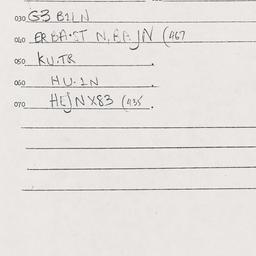 030 G3 B21N
040 ER BA·ST N.BAJN (467
050 KU·TR
060 HU·1N
070 HEJNX83 (435